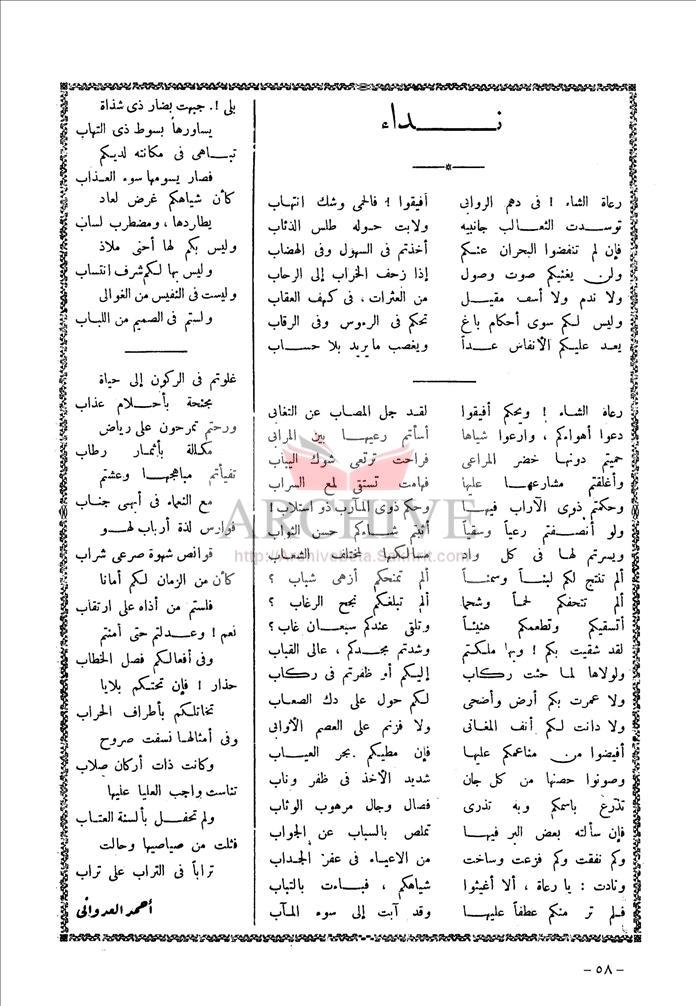 نداء
رعاة الشاء ! فى دهم الروابى أفيقوا ! فالحمى وشك انتهاب
توسدت الثعالب جانبيه ولابت حوله طلس الذئاب
فإن لم تنفضوا البحران عنكم أخذتم فى السهول وفى الهضاب
ولن يغنيكم صوت وصول إذا زحف الخراب إلى الرحاب
ولا ندم ولا أسف مقيل من العثرات ، فى كهف العقاب
وليس لكم سوى أحكام باغ تحكم فى الرءوس وفى الرقاب
يعد عليكم الأنفاس عداً ويغصب ما يريد بلا حساب
رعاة الشاء ! ويحكم أفيقوا لقد جل المصاب عن التغابى
دعوا أهواءكم ، وارعوا شياها أسأتم رعيها بين المرابى
حميتم دونها خضر المراعى فراحت ترتعى شوك اليباب
وأغلقتم مشارعها عليها فهامت تستقى لمع السراب
وحكمتم ذوى الآراب فيها وحكم ذوى المآرب ذو استلاب !
ولو أنصفتم رعياً وسقياً أقيتم شاءكم حسن الثواب
ويسرتم لها فى كل واد مسالكها لمختلف الشعاب
ألم تنتج لكم لبناً وسمناً ألم تمنحكم أزهى شباب ؟
ألم تتحفكم لحماً وشحما ألم تبلغكم نجح الرغاب ؟
أتسقيكم وتطعمكم هنيئاً وتلقى عندكم سبعان غاب ؟
لقد شقيت بكم ! وبها ملكتم وشدتم مجدكم ، عالى القباب
ولولاها لما حثت ركاب إليكم أو ظفرتم فى ركاب
ولا عمرت بكم أرض وأضحى لكم حول على دك الصعاب
ولا دانت لكم أنف المغانى ولا فزتم على العصم الأوابى
أفيضوا من متاعمكم عليها فإن مطيكم بحر العياب
وصونوا حصنها من كل جان شديد الأخذ فى ظفر وناب
تذرع باسمكم وبه تذرى فصال وجال مرهوب الوثاب
فإن سألته بعض البر فيها تملص بالسباب عن الجواب
وكم نفقت وكم فزعت وساخت من الاعياء فى عفر الجداب
ونادت : يا رعاة ، ألا أغيثوا شياهكم ، فباءت بالتباب
فلم تر منكم عطفاً عليها وقد آبت إلى سوء المآب
بلى !. جبهت بضار ذى شذاة
يساورها بسوط ذى التهاب
تباهى فى مكانته لديكم
فصار يسومها سوء العذاب
كأن شياهكم غرض لعاد
يطاردها ، ومضطرب لساب
وليس بكم لها أحنى ملاذ
وليس بها لكم شرف انتساب
وليست فى النفيس من الغوالى
ولستم فى الصميم من اللباب
غلوتم فى الركون إلى حياة
مجنحة بأحلام عذاب
ورحتم تمرحون على رياض
مكللة بأثمار رطاب
تفيأتم مباهجها وعشتم
مع النعماء فى أبهى جناب
فوارس لذة أرباب لهو
قوانص شهوة صرعى شراب
كأن من الزمان لكم أمانا
فلستم من أذاه على ارتقاب
نعم ! وعدلتم حتى أمنتم
وفى أفعالكم فصل الخطاب
حذار ! فإن تحتكم بلايا
تخاتلكم بأطراف الحراب
وفى أمثالها نسفت صروح
وكانت ذات أركان صلاب
تناست واجب العليا عليها
ولم تحفل بألسنة العتاب
فثلت من صياصيها وحالت
تراباً فى التراب على تراب
أحمد العدوانى
ARCHIVE
- ٥٨ -